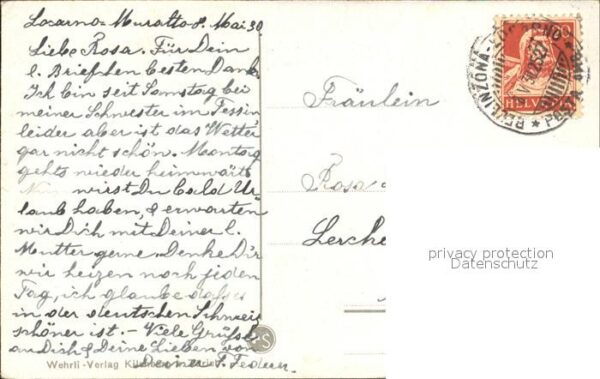 Locarno-Muralto 8. Mai 30
Liebe Rosa. Für Dein
l. Briefchen besten Dank.
Ich bin seit Samstag bei
meiner Schwester im Tessin
leider aber ist das Wetter
gar nicht schön. Montag
gehts wieder heimwärts
wirst Du bald Ur-
laub haben, & erwarten
wir Dich mit Deiner l.
Mutter gerne. Denke Dir
wir heizen noch jeden
Tag, ich glaube dass es
in der deutschen Schweiz
schöner ist. – Viele Grüsse
an Dich & Deine Lieben von
Deiner S. Federer.
Wehrli-Verlag
Fräulein
Rosa
Lerche
BELLINZONA-LOCARNO
POSTA AMB.
HELVETIA
privacy protection
Datenschutz